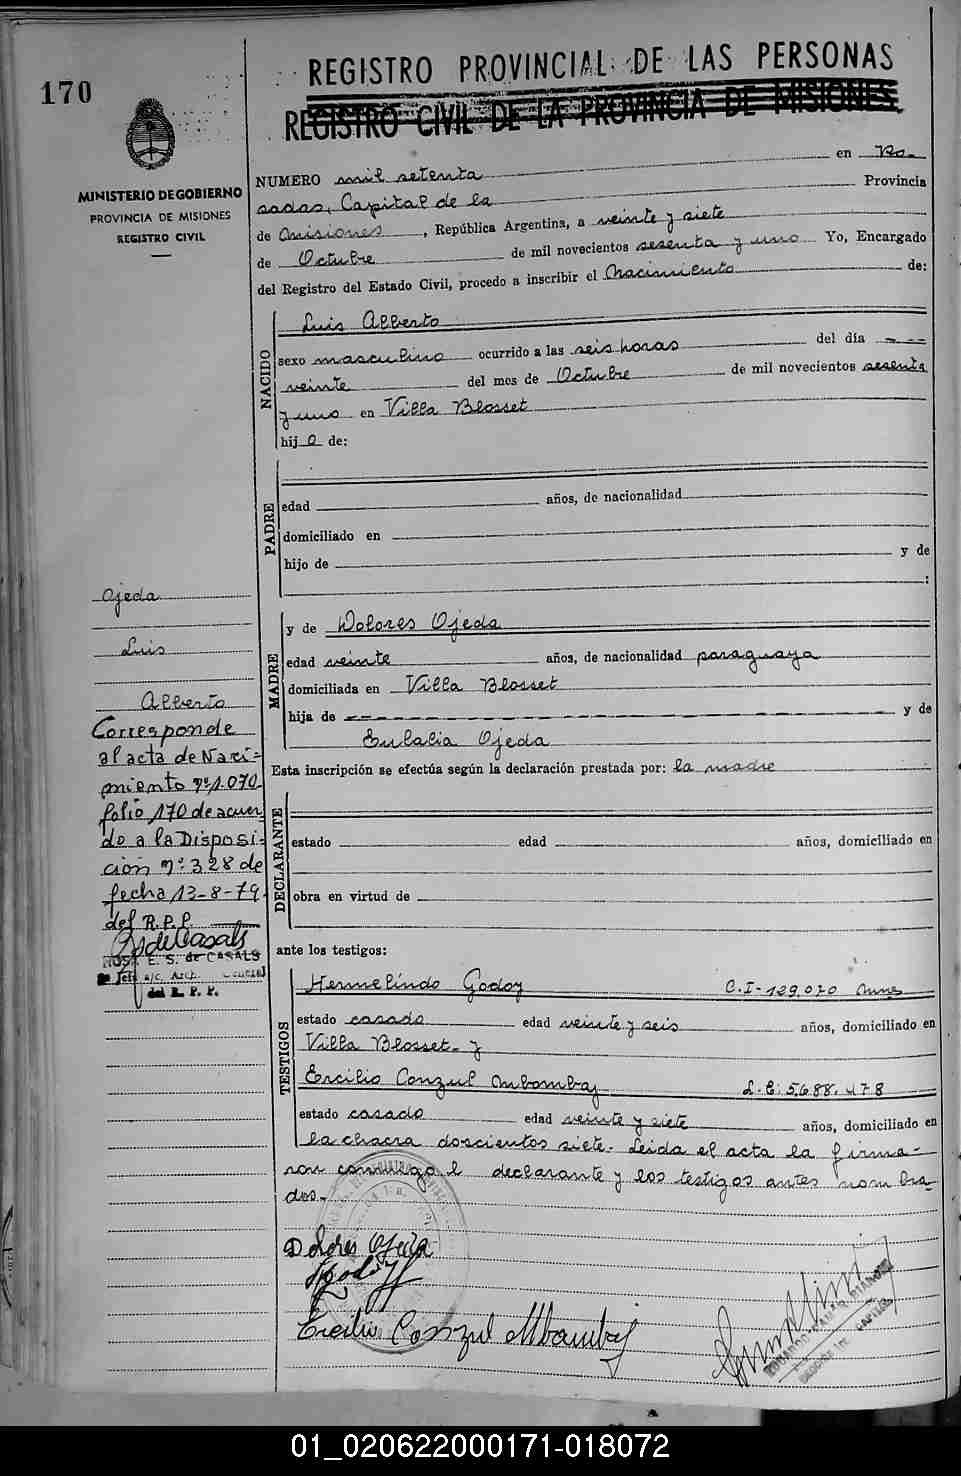 170
MINISTERIO DE GOBIERNO
PROVINCIA DE MISIONES
REGISTRO CIVIL
REGISTRO PROVINCIAL DE LAS PERSONAS
REGISTRO CIVIL DE LA PROVINCIA DE MISIONES
NUMERO mil setenta en Po-
sadas, Capital de la Provincia
de Misiones, República Argentina, a veinte y siete
de Octubre de mil novecientos sesenta y uno Yo, Encargado
del Registro del Estado Civil, procedo a inscribir el Nacimiento de:
NACIDO
Luis Alberto
sexo masculino ocurrido a las seis horas del día
veinte del mes de Octubre de mil novecientos sesenta
y uno en Villa Blosset
hijo de:
PADRE
edad años, de nacionalidad
domiciliado en
hijo de y de
:
MADRE
y de Dolores Ojeda
edad veinte años, de nacionalidad paraguaya
domiciliada en Villa Blosset
hija de y de
Eulalia Ojeda
Esta inscripción se efectúa según la declaración prestada por: la madre
DECLARANTE
estado edad años, domiciliado en
obra en virtud de
ante los testigos:
TESTIGOS
Hermelindo Godoy C.I-129.070 Mnes
estado casado edad veinte y seis años, domiciliado en
Villa Blosset- y
Ercilio Conzul Mbombaj L.E: 5.688.478
estado casado edad veinte y siete años, domiciliado en
la chacra doscientos siete. Leida el acta la firma-
ron conmigo l declarante y los testigos antes nombra-
dos.-
Dolores Ojeda
Ercilio Conzul Mbambaj
Ojeda
Luis
Alberto
Corresponde
al acta de Naci-
miento nº 1.070
folio 170 de acuer
do a la Disposi-
ción nº 328 de
fecha 13-8-79
del R.P.P.
E. S. de CASALS
Jefe a/c. Arch. General
del R. P. P.
01_020622000171-018072